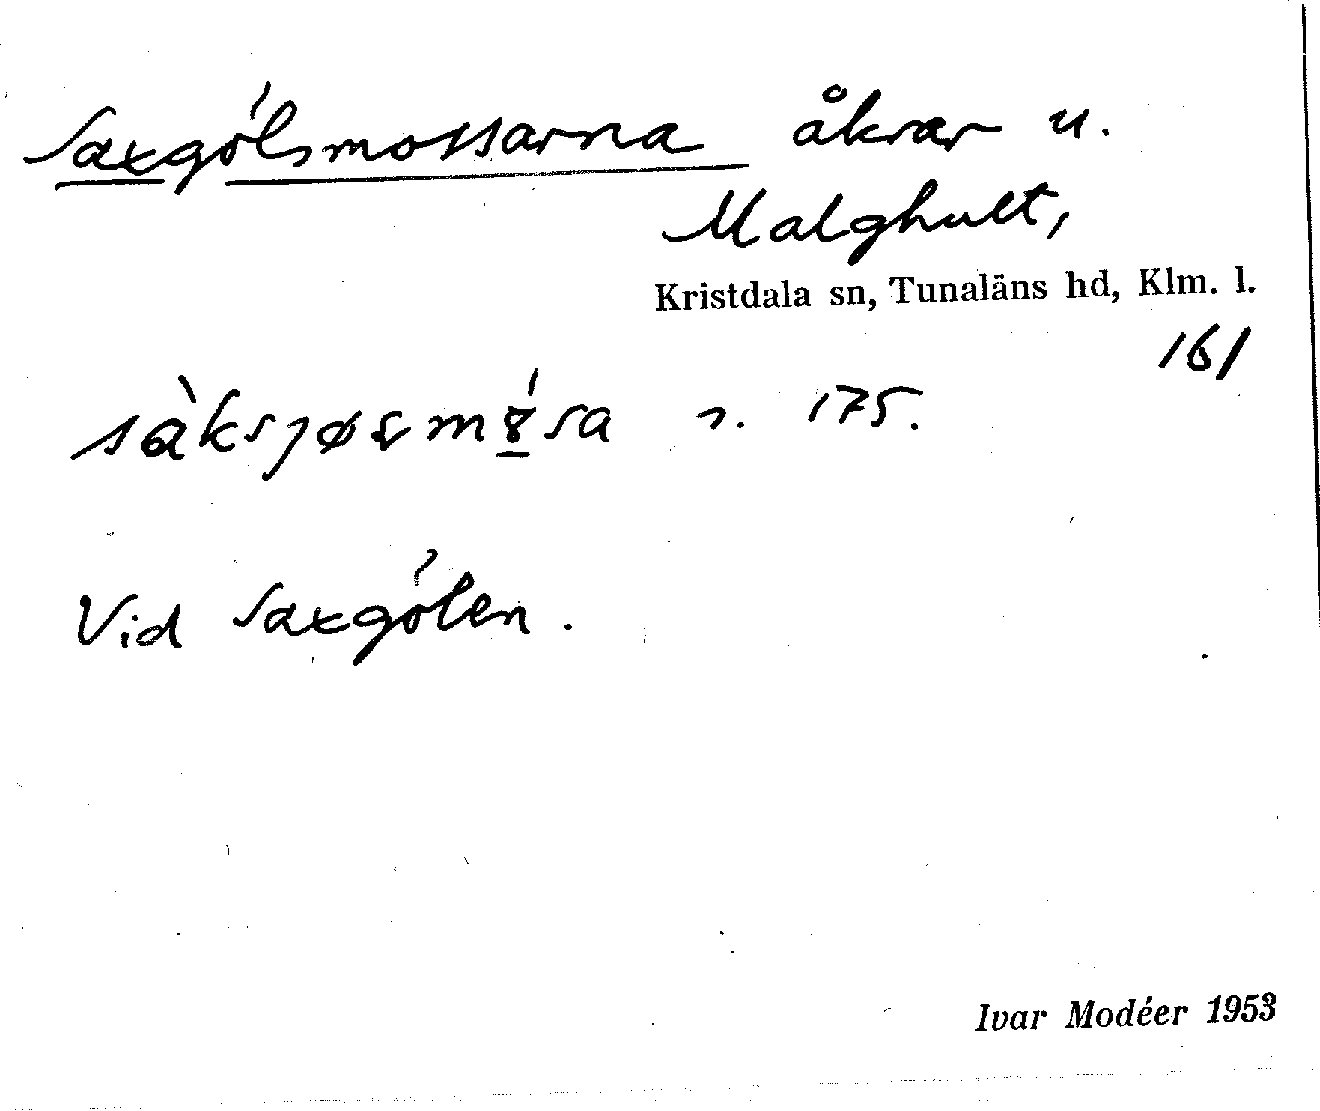 Saxgölsmossarna åkrar u.
Malghult,
Kristdala sn, Tunaläns hd, Klm. l.
161
s. 175.
Vid Saxgölen.
Ivar Modéer 1953